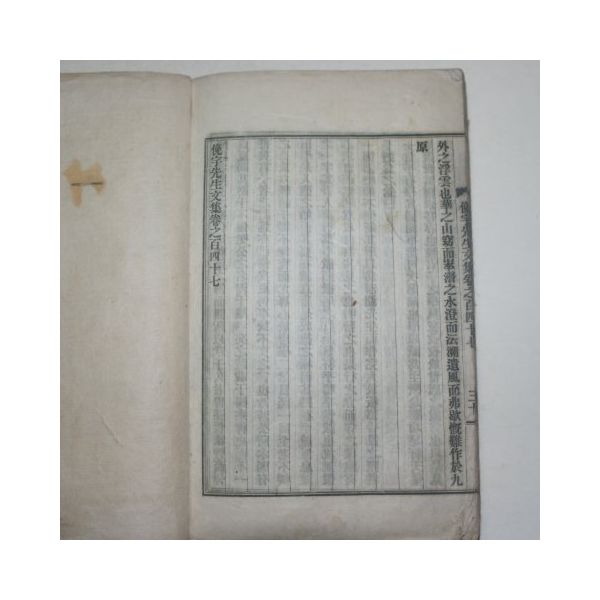 俛宇先生文集卷之百四十七
外之浮雲也華之山窈而素潛之水澄而法瀰遺風而弗歇慨難作於九
原
俛宇先生文集卷之百四十七